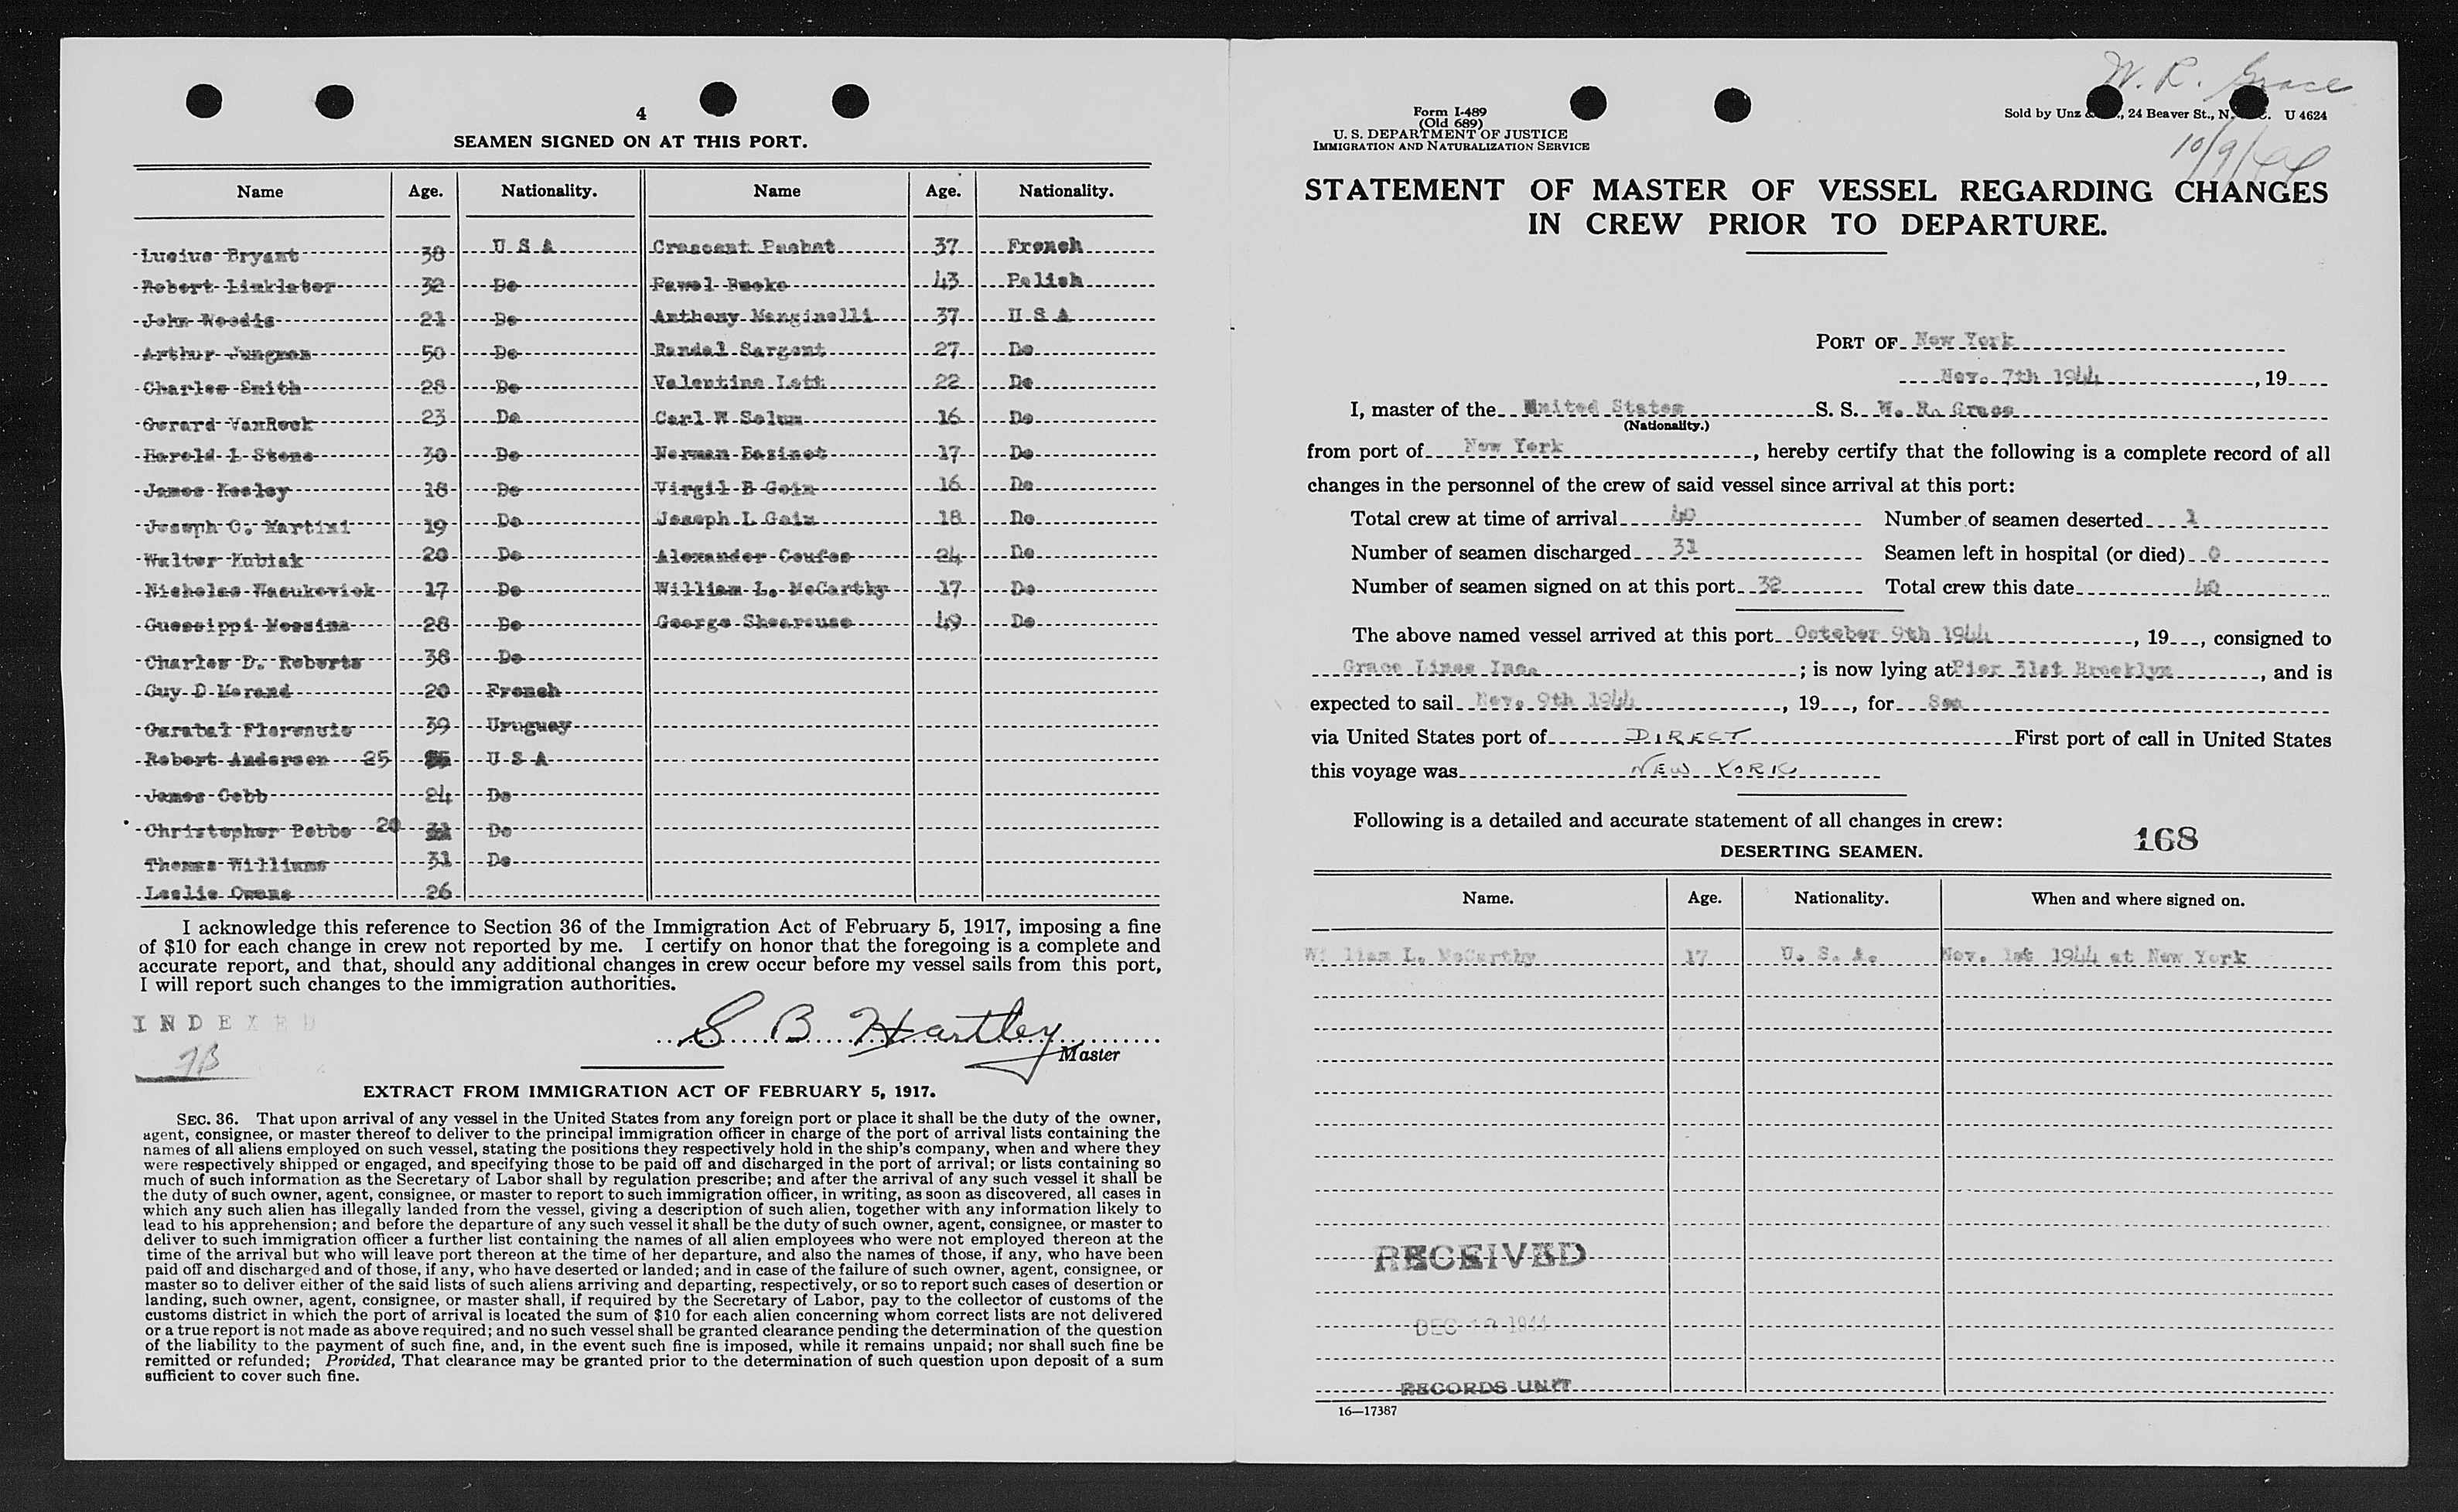 4
SEAMEN SIGNED ON AT THIS PORT.
Name Age. Nationality. Name Age. Nationality.
Lucius Bryant 38 U S A Crescent Pashat 37 French
Robert Linklater 32 Do Pawel Bucko 43 Polish
John Woodis 21 Do Anthony Manginelli 37 U S A
Arthur Jungman 50 Do Randal Sargent 27 Do
Charles Smith 28 Do Valentine Lett 22 Do
Gerard VanRock 23 Do Carl W Solum 16 Do
Harold L Stone 30 Do Norman Basinet 17 Do
James Keeley 18 Do Virgil B Goin 16 Do
Joseph C. Martini 19 Do Joseph L Goin 18 Do
Walter Kubiak 20 Do Alexander Coufos 24 Do
Nicholas Wasukovick 17 Do William L. McCarthy 17 Do
Guessippi Messina 28 Do George Shearouse 49 Do
Charles D. Roberts 38 Do
Guy D Morand 20 French
Garabal Florencio 39 Uruguay
Robert Andersen 25 U S A
James Cobb 24 Do
Christopher Pebbo 20 Do
Thomas Williams 31 Do
Leslie Owens 26
I acknowledge this reference to Section 36 of the Immigration Act of February 5, 1917, imposing a fine
of $10 for each change in crew not reported by me. I certify on honor that the foregoing is a complete and
accurate report, and that, should any additional changes in crew occur before my vessel sails from this port,
I will report such changes to the immigration authorities.
INDEXED
S B Hartley
Master
EXTRACT FROM IMMIGRATION ACT OF FEBRUARY 5, 1917.
SEC. 36. That upon arrival of any vessel in the United States from any foreign port or place it shall be the duty of the owner,
agent, consignee, or master thereof to deliver to the principal immigration officer in charge of the port of arrival lists containing the
names of all aliens employed on such vessel, stating the positions they respectively hold in the ship's company, when and where they
were respectively shipped or engaged, and specifying those to be paid off and discharged in the port of arrival; or lists containing so
much of such information as the Secretary of Labor shall by regulation prescribe; and after the arrival of any such vessel it shall be
the duty of such owner, agent, consignee, or master to report to such immigration officer, in writing, as soon as discovered, all cases in
which any such alien has illegally landed from the vessel, giving a description of such alien, together with any information likely to
lead to his apprehension; and before the departure of any such vessel it shall be the duty of such owner, agent, consignee, or master to
deliver to such immigration officer a further list containing the names of all alien employees who were not employed thereon at the
time of the arrival but who will leave port thereon at the time of her departure, and also the names of those, if any, who have been
paid off and discharged and of those, if any, who have deserted or landed; and in case of the failure of such owner, agent, consignee, or
master so to deliver either of the said lists of such aliens arriving and departing, respectively, or so to report such cases of desertion or
landing, such owner, agent, consignee, or master shall, if required by the Secretary of Labor, pay to the collector of customs of the
customs district in which the port of arrival is located the sum of $10 for each alien concerning whom correct lists are not delivered
or a true report is not made as above required; and no such vessel shall be granted clearance pending the determination of the question
of the liability to the payment of such fine, and, in the event such fine is imposed, while it remains unpaid; nor shall such fine be
remitted or refunded; Provided, That clearance may be granted prior to the determination of such question upon deposit of a sum
sufficient to cover such fine.
W. R. Grace
Form I-489
(Old 689)
U. S. DEPARTMENT OF JUSTICE
IMMIGRATION AND NATURALIZATION SERVICE
Sold by Unz 24 Beaver St., N. U 4624
10/9/44
STATEMENT OF MASTER OF VESSEL REGARDING CHANGES
IN CREW PRIOR TO DEPARTURE.
PORT OF New York
Nov. 7th 1944, 19
I, master of the United States S. S. W. R. Grace
(Nationality.)
from port of New York, hereby certify that the following is a complete record of all
changes in the personnel of the crew of said vessel since arrival at this port:
Total crew at time of arrival 40 Number of seamen deserted 1
Number of seamen discharged 31 Seamen left in hospital (or died) 0
Number of seamen signed on at this port 32 Total crew this date 40
The above named vessel arrived at this port October 9th 1944, 19, consigned to
Grace Lines Inc.; is now lying at Pier 31st Brooklyn, and is
expected to sail Nov. 9th 1944, 19, for Sea
via United States port of DIRECT First port of call in United States
this voyage was NEW YORK
Following is a detailed and accurate statement of all changes in crew:
168
DESERTING SEAMEN.
Name. Age. Nationality. When and where signed on.
William L. McCarthy 17 U. S. A. Nov. 1st 1944 at New York
RECEIVED
DEC 1944
RECORDS UNIT
16—17387